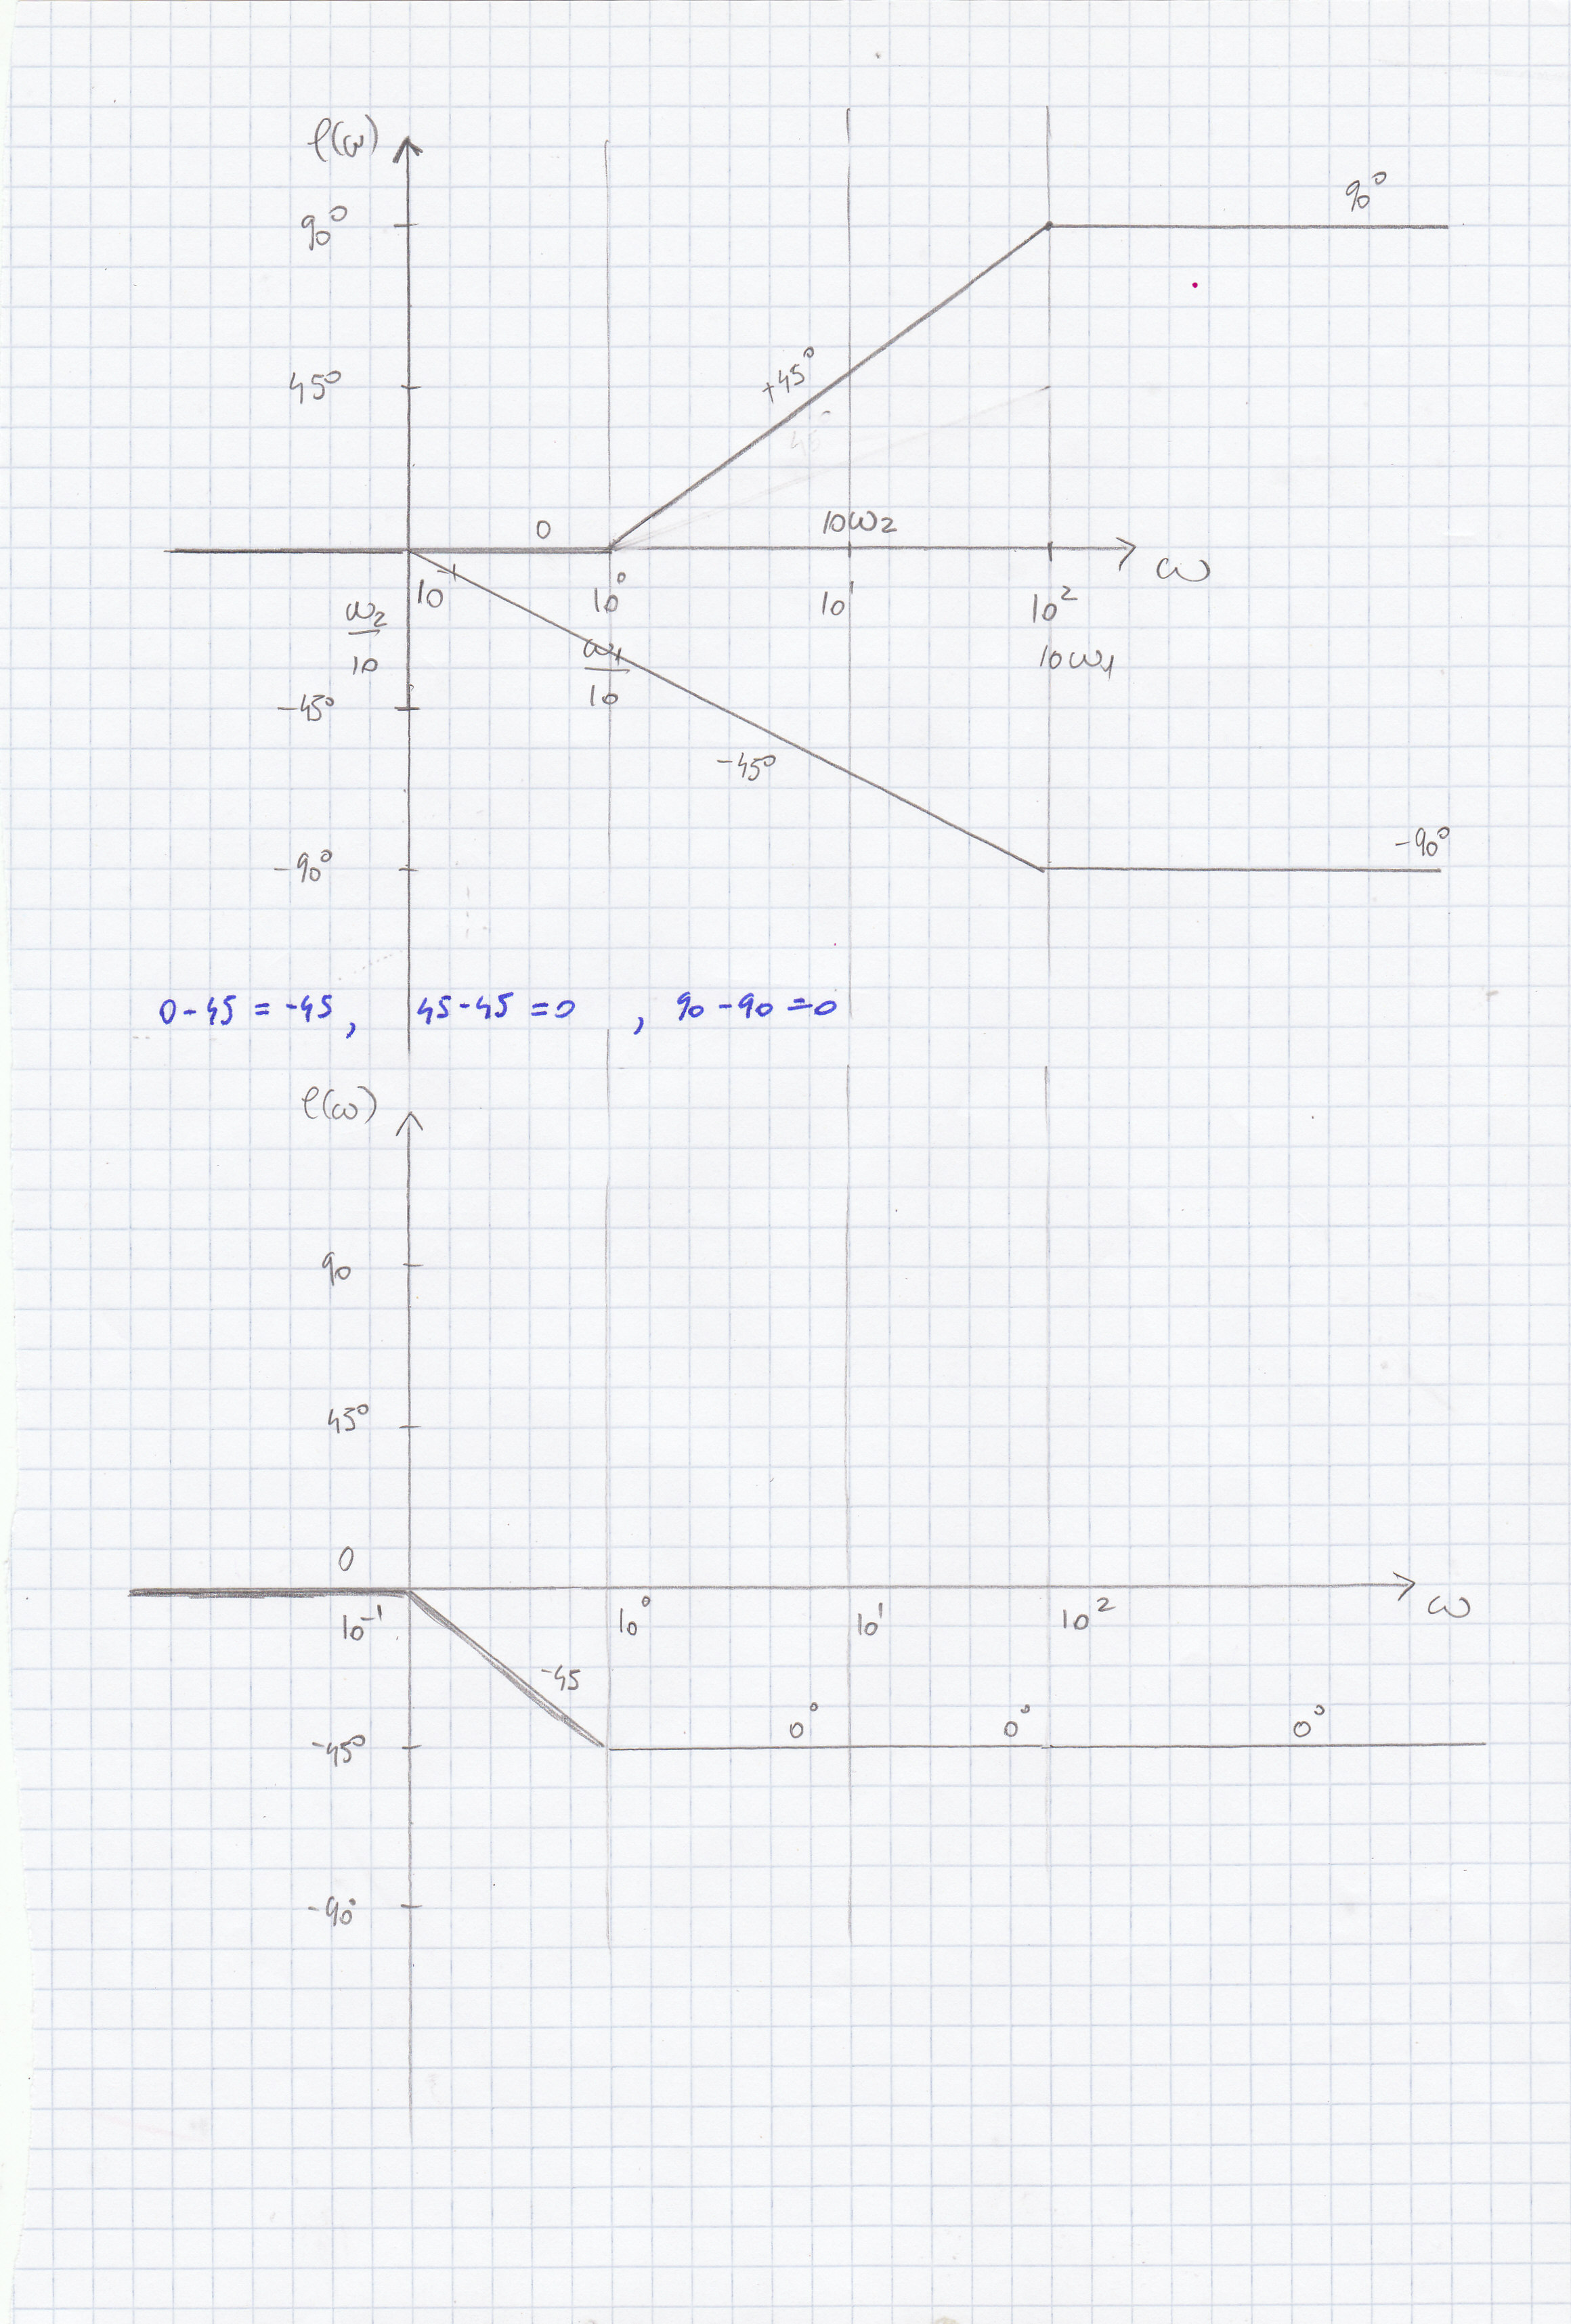 φ(ω)
90°
90°
+45°
45°
0
10ω₂
ω
10⁻¹
10⁰
10¹
10²
ω₂/10
ω₁/10
10ω₁
-45°
-45°
-90°
-90°
0-45 = -45, 45-45 =0 , 90-90 =0
φ(ω)
90
45°
0
ω
10⁻¹
10⁰
10¹
10²
-45
0° 0° 0°
-45°
-90°